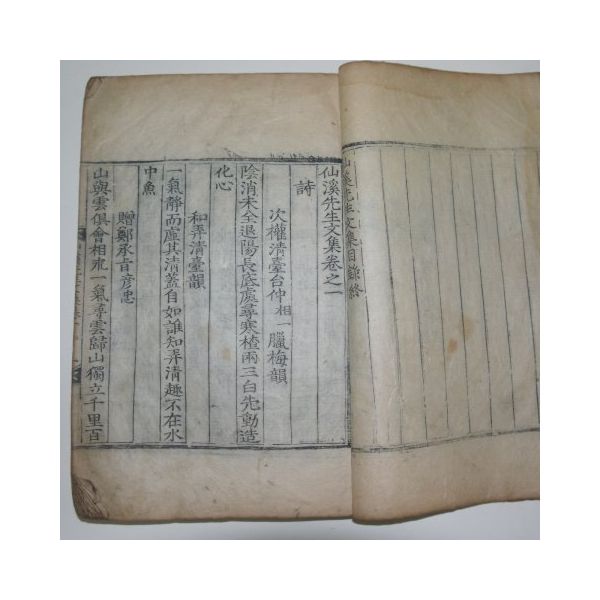 仙溪先生文集目錄終
仙溪先生文集卷之一
詩
次權清臺台仲相一臘梅韻
陰消未全退陽長底處尋寒楂兩三白先動造
化心
和弄清臺韻
一氣靜而虛其清蓋自如誰知弄清趣不在水
中魚
贈鄭承旨彦忠
山與雲俱會相 一氣尋雲歸山獨立千里百